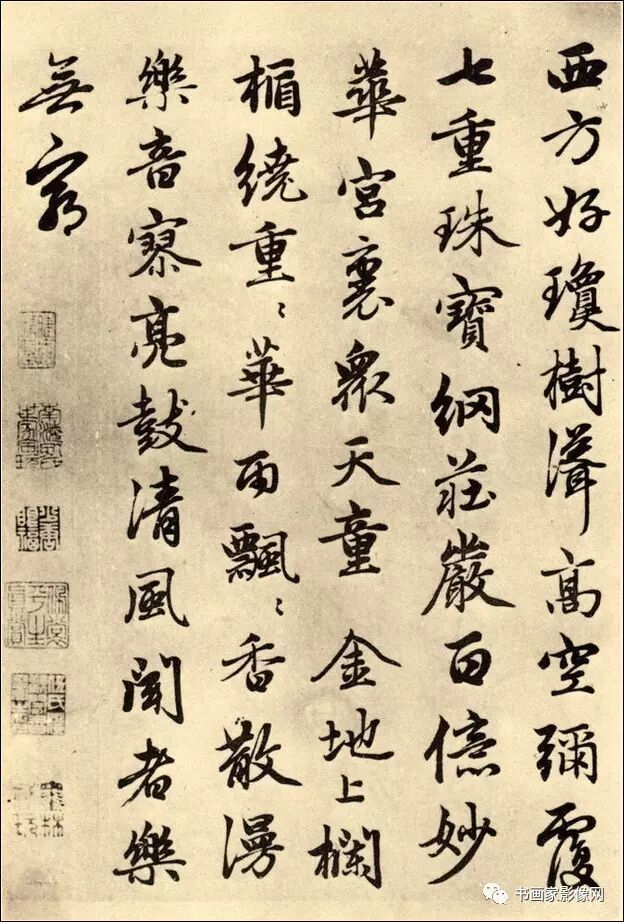 西方好瓊樹聳高空彌覆
七重珠寶網莊嚴百億妙
華宮裏眾天童 金地上欄
楯繞重〻華雨飄〻香散漫
樂音寥亮鼓清風聞者樂
無窮
书画家影像网